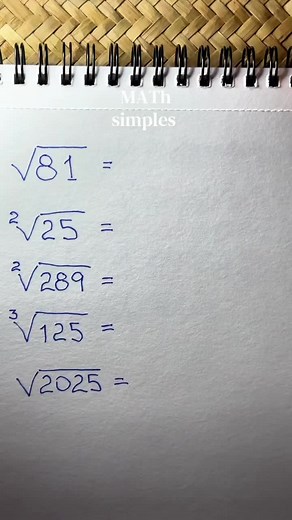 MATh
simples
√81 =
²√25 =
²√289 =
³√125 =
√2025 =